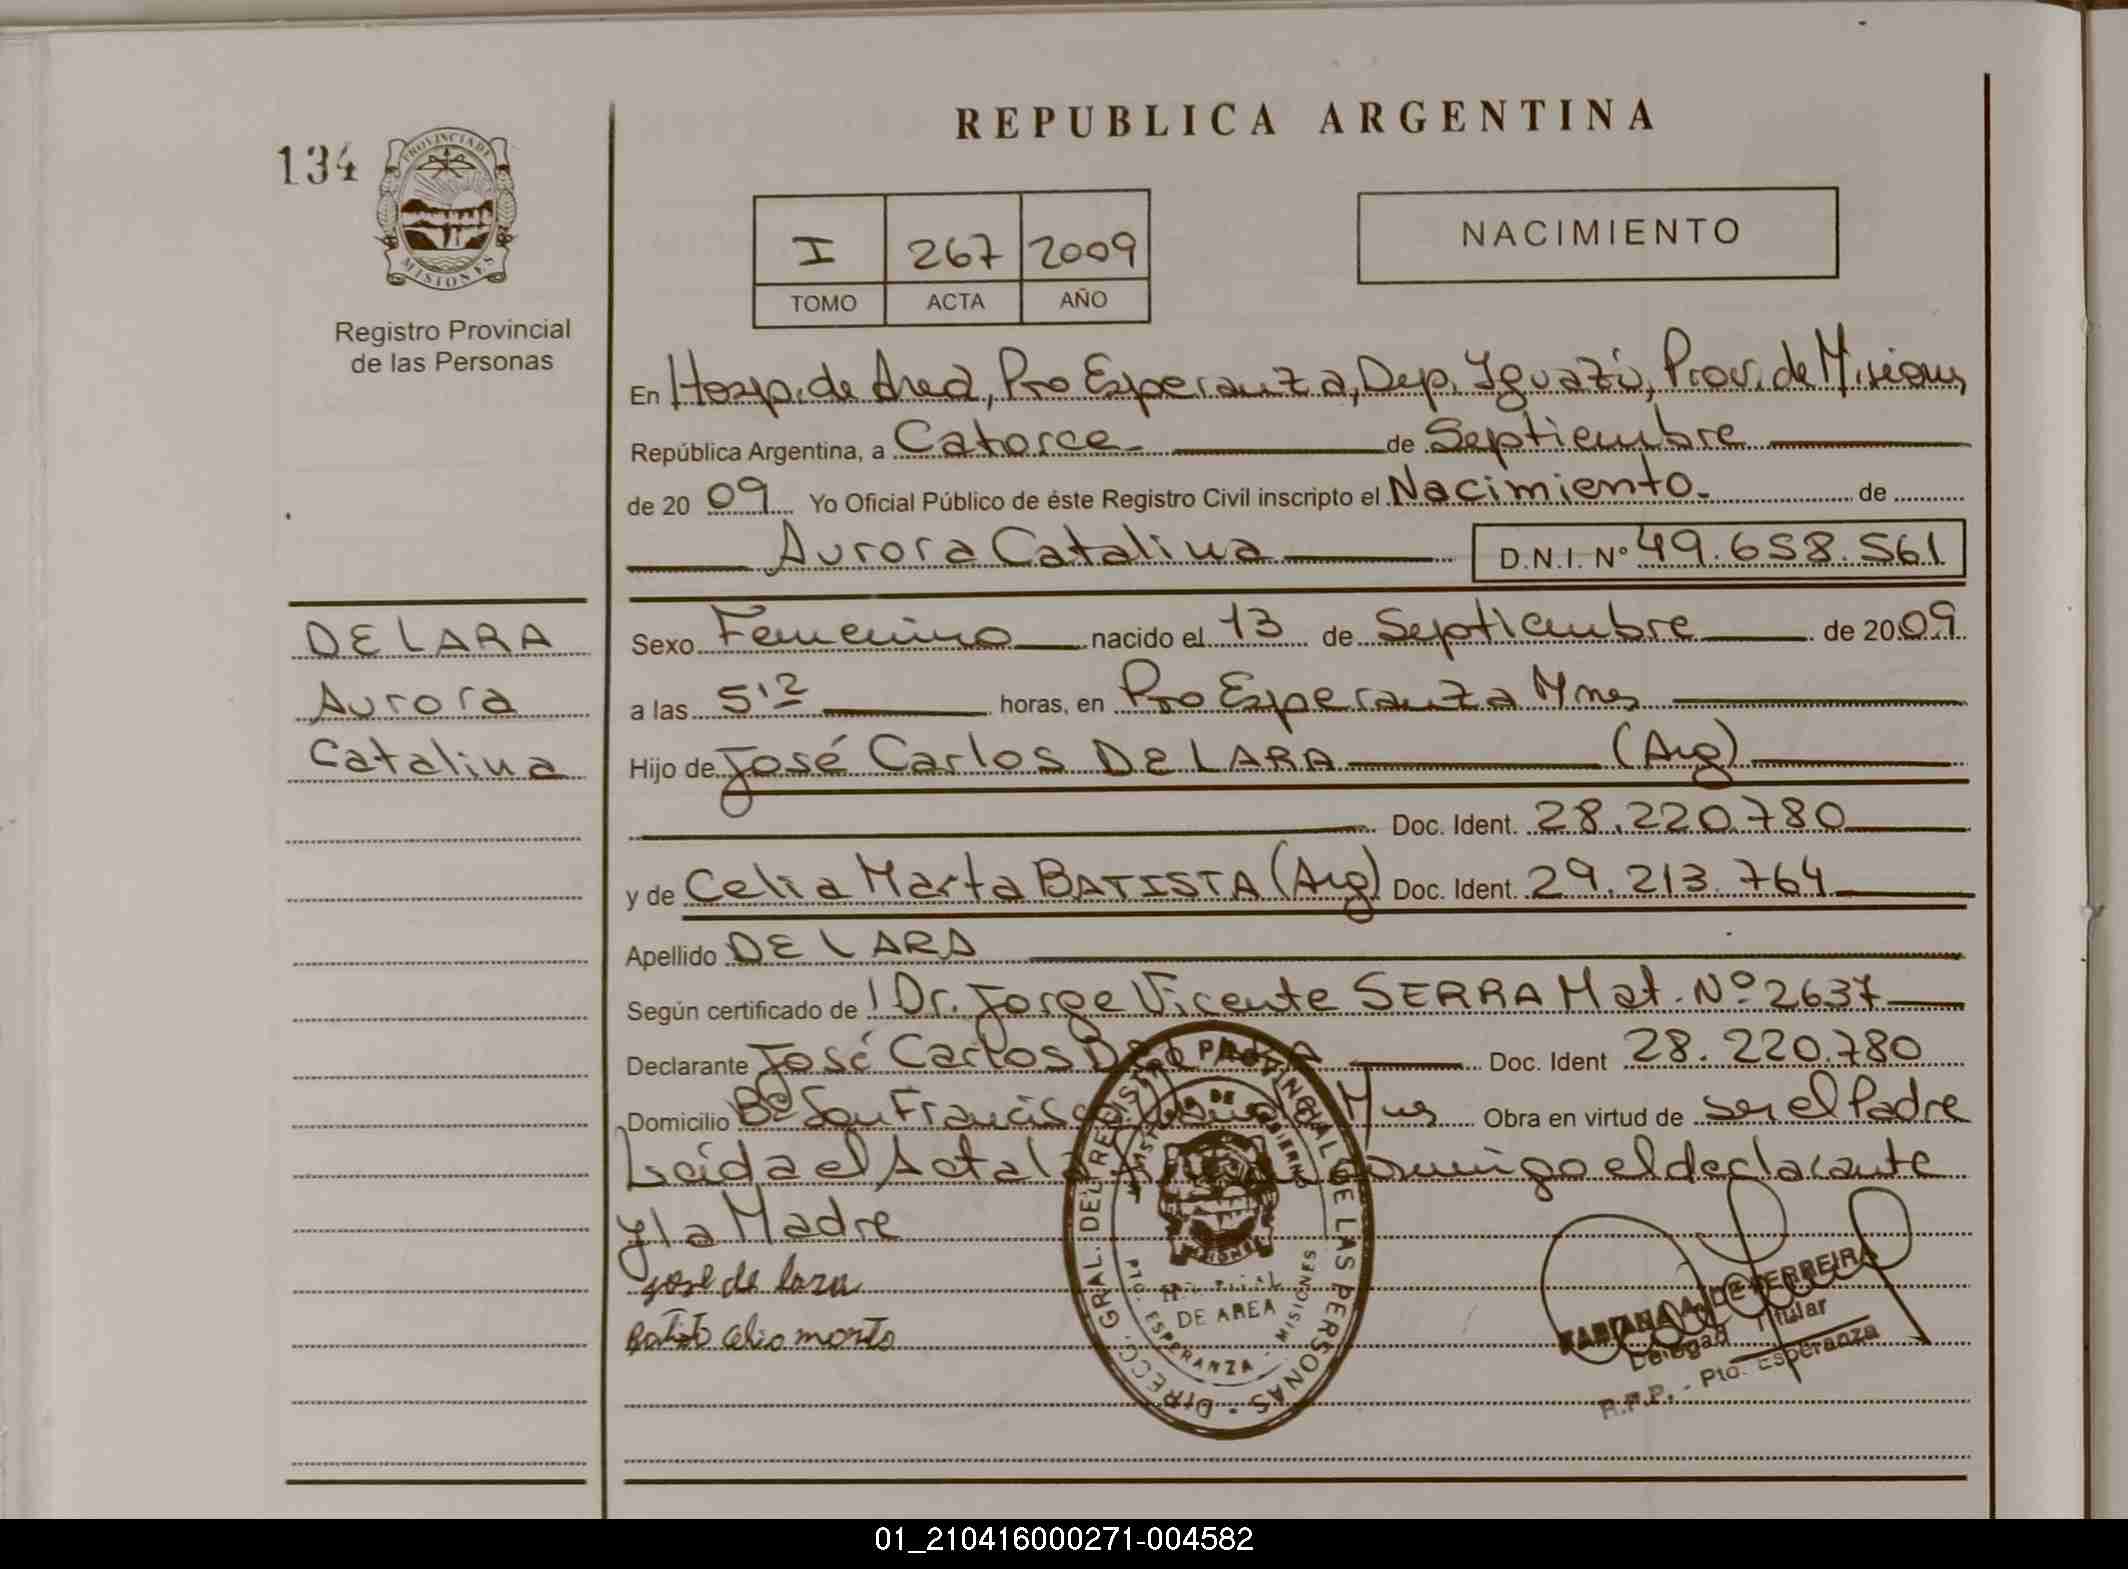 REPUBLICA ARGENTINA
134
PROVINCIA DE
MISIONES
Registro Provincial
de las Personas
I 267 2009
TOMO ACTA AÑO
NACIMIENTO
En Hosp. de Area, Pto Esperanza, Dep. Iguazú, Prov. de Misiones
República Argentina, a Catorce de Septiembre
de 20 09 Yo Oficial Público de éste Registro Civil inscripto el Nacimiento de
Aurora Catalina D.N.I. Nº 49.658.561
DE LARA
Aurora
Catalina
Sexo Femenino nacido el 13 de Septiembre de 20 09
a las 5'2 horas, en Pto Esperanza Mnes
Hijo de José Carlos DE LARA (Arg)
Doc. Ident. 28.220.780
y de Celia Marta BATISTA (Arg) Doc. Ident. 29.213.764
Apellido DE LARA
Según certificado de Dr. Jorge Vicente SERRA Mat. Nº 2637
Declarante José Carlos Doc. Ident 28.220.780
Domicilio Bº San Francisco Mnes Obra en virtud de ser el Padre
Leída el Acta la conmigo el declarante
y la Madre
jose de lara
celia
DIRECC. GRAL. DEL REGISTRO PROVINCIAL DE LAS PERSONAS
MINISTERIO DE GOBIERNO
MISIONES
DE AREA
PTO. ESPERANZA - MISIONES
FABIANA A. DE FERREIRA
Delegada Titular
R.P.P. - Pto. Esperanza
01_210416000271-004582